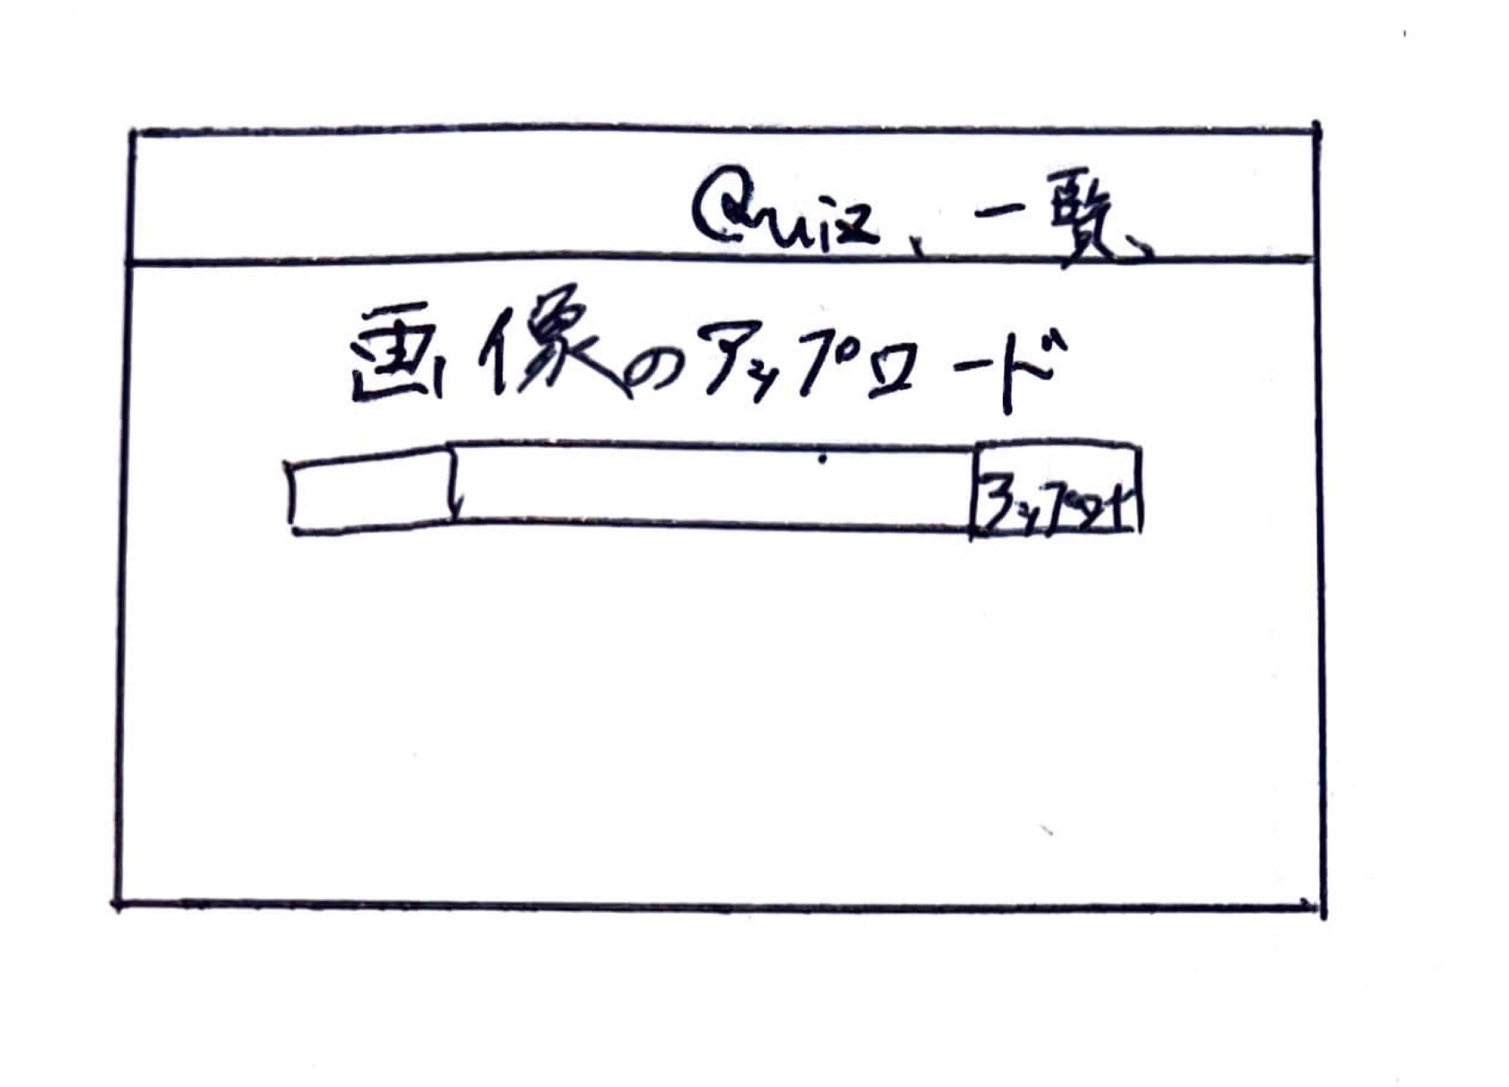 Quiz、一覧、
画像のアップロード
アップロード